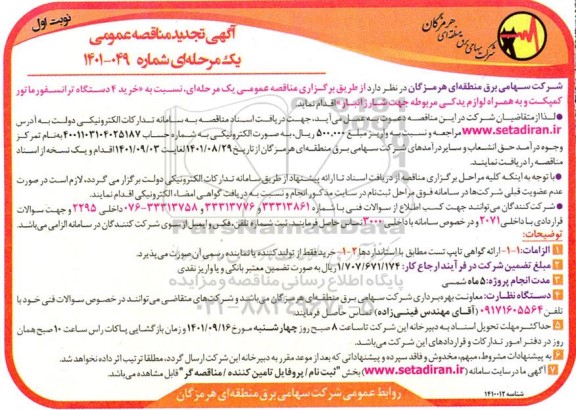 نوبت اول
شرکت سهامی برق منطقه‌ای هرمزگان
آگهی تجدید مناقصه عمومی
یک مرحله‌ای شماره ۰۴۹-۱۴۰۱
شرکت سهامی برق منطقه‌ای هرمزگان در نظر دارد از طریق برگزاری مناقصه عمومی یک مرحله‌ای، نسبت به «خرید ۲ دستگاه ترانسفورماتور
کمپکت و به همراه لوازم یدکی مربوطه جهت شارژ انبار» اقدام نماید.
●لذا از متقاضیان شرکت در این مناقصه دعوت به عمل می‌آید، جهت دریافت اسناد مناقصه به سامانه تدارکات الکترونیکی دولت به آدرس
www.setadiran.ir مراجعه و نسبت به واریز مبلغ ۵۰۰,۰۰۰ ریال، به صورت الکترونیکی به شماره حساب ۴۰۰۱۱۰۳۱۰۴۰۲۵۱۸۷ به نام تمرکز
وجوه درآمد حق انشعاب و سایر درآمدهای شرکت سهامی برق منطقه‌ای هرمزگان از تاریخ ۱۴۰۱/۰۸/۲۹ لغایت ۱۴۰۱/۰۹/۰۳ اقدام و یک نسخه از اسناد
مناقصه را دریافت نمایند.
●با توجه به اینکه کلیه مراحل برگزاری مناقصه از دریافت اسناد تا ارائه پیشنهاد از طریق سامانه تدارکات الکترونیکی دولت برگزار می گردد، لازم است در صورت
عدم عضویت قبلی شرکت‌ها در سامانه فوق مراحل ثبت‌نام در سایت مذکور انجام و نسبت به دریافت گواهی امضاء الکترونیکی اقدام نمایند.
●شرکت‌کنندگان می‌توانند جهت کسب اطلاع از سوالات فنی با شماره ۳۳۳۱۳۸۶۱ و ۳۳۳۱۳۷۷۶ و ۳۳۳۱۳۷۵۸-۰۷۶ داخلی ۲۲۹۵ و جهت سوالات
قراردادی با داخلی ۲۰۷۱ و در خصوص سامانه با داخلی ۳۰۰۰ تماس حاصل فرمایند. ثبت شماره تلفن، فکس و ایمیل از سوی شرکت‌کنندگان در سامانه الزامی می‌باشد.
توضیحات:
۱ الزامات: ۱-۱- ارائه گواهی تایپ تست مطابق با استانداردها ۲-۱- خرید فقط از تولید کننده یا نماینده رسمی آن صورت می‌پذیرد.
۲ مبلغ تضمین شرکت در فرآیند ارجاع کار: ۱/۷۰۷/۶۷۱/۱۷۴ ریال به صورت تضمین معتبر بانکی و یا واریز نقدی
۳ مدت انجام پروژه: ۵ ماه شمسی
۴ دستگاه نظارت: معاونت بهره‌برداری شرکت سهامی برق منطقه‌ای هرمزگان می‌باشد و شرکت‌های متقاضی می‌توانند در خصوص سوالات فنی خود با
تلفن ۰۹۱۷۱۶۰۵۵۶۴ (آقای مهندس فیشی‌زاده) تماس حاصل فرمایند.
۵ حداکثر مهلت تحویل اسناد به دبیرخانه این شرکت تا ساعت ۸ صبح روز چهارشنبه مورخ ۱۴۰۱/۰۹/۱۶ و زمان بازگشایی پاکات راس ساعت ۱۰ صبح همان
روز در دفتر امور تدارکات و قراردادهای این شرکت می‌باشد.
۶ به پیشنهادات مشروط، مبهم، مخدوش و فاقد سپرده و پیشنهاداتی که بعد از موعد مقرر به دبیرخانه این شرکت ارسال گردد، مطلقا ترتیب اثر داده نخواهد شد.
۷ آگهی ما در سایت سامانه (www.setadiran.ir) بخش "ثبت نام / پروفایل تامین کننده / مناقصه گر" قابل مشاهده می‌باشد.
شناسه ۱۴۱۰۰۱۲
روابط عمومی شرکت سهامی برق منطقه‌ای هرمزگان
ParsNamadData
پایگاه اطلاع رسانی مناقصه و مزایده